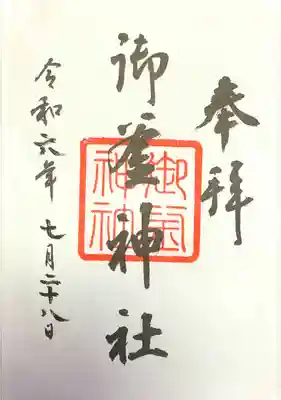 奉拝
御釜神社
令和六年 七月二十八日
御釜神社